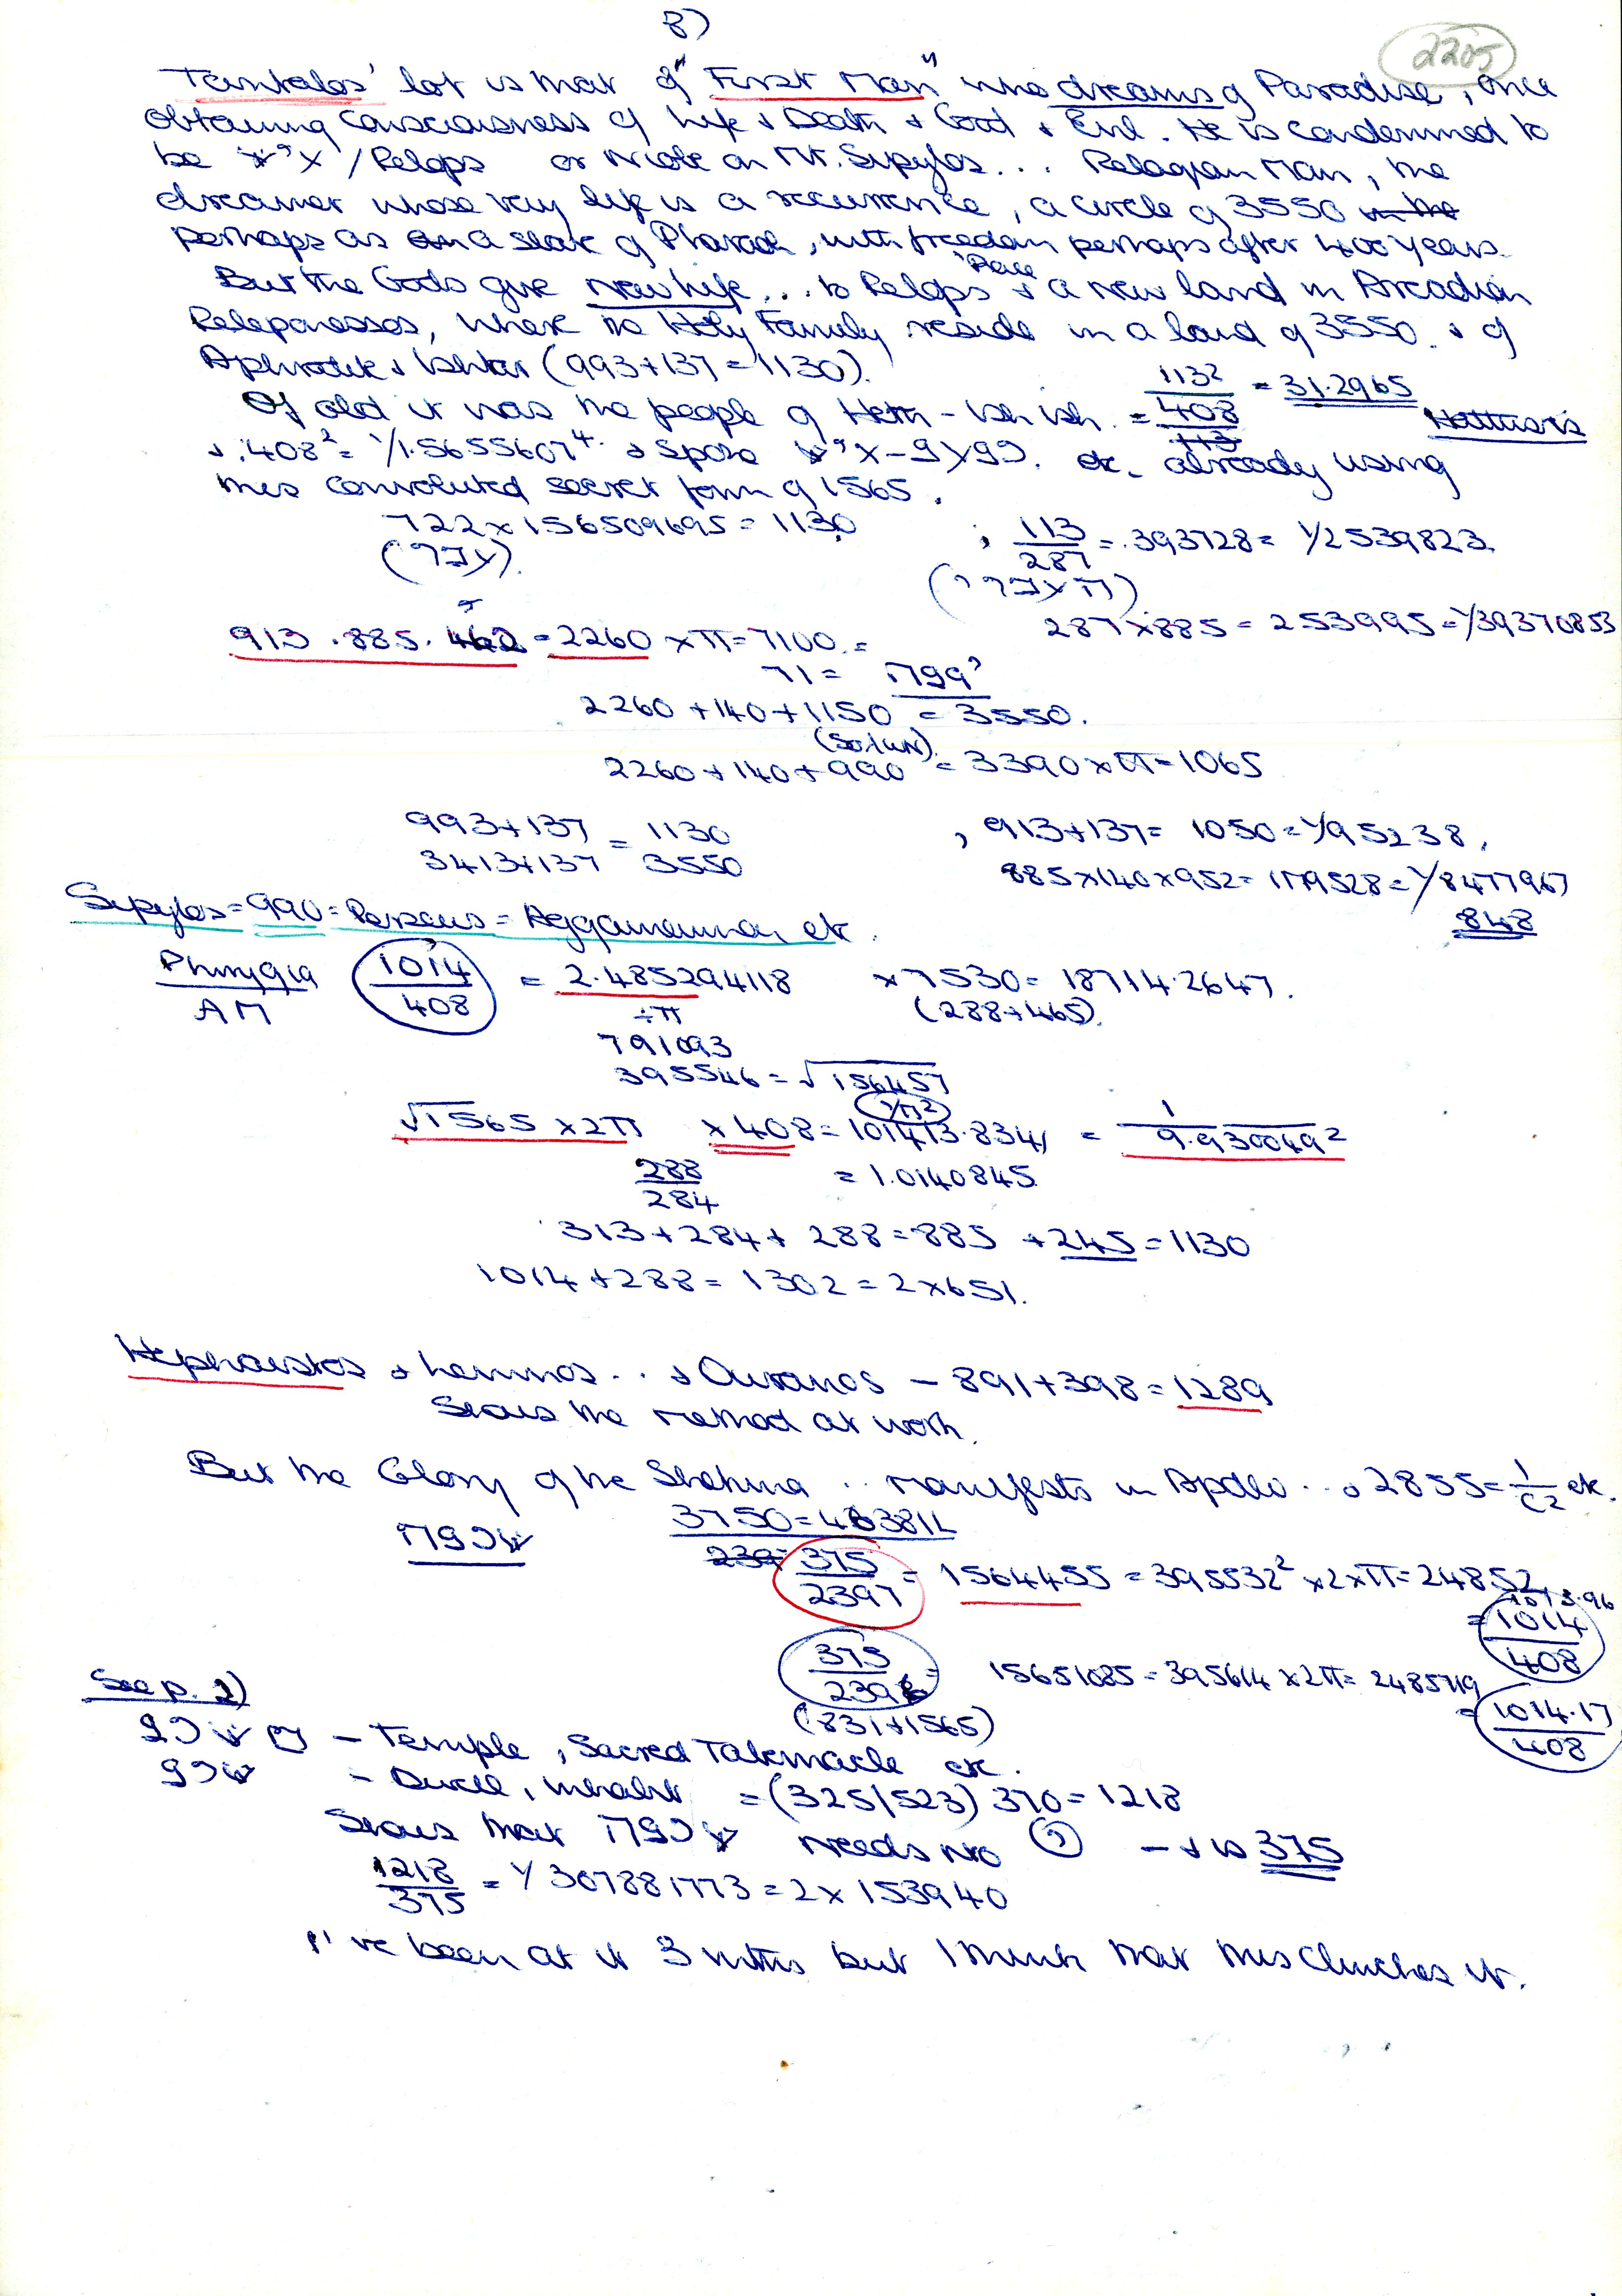 8)
2205
Tantalos' lot is that of "First Man" who dreams of Paradise, once
obtaining Consciousness of Life & Death & Good & Evil. He is condemned to
be /Pelops or Niobe on Mt. Sipylos... Pelagian Man, the
dreamer whose very life is a recurrence, a circle of 3550
perhaps as a slave of Pharaoh, with freedom perhaps after 400 years.
But the Gods give new life... to Pelops & a new land in Arcadian
Peleponessos, where the Holy Family reside in a land of 3550. & of
Aphrodite & Ishtar (993+137=1130).
Of old it was the people of Heth - Ish ish. = 113²/408 = 31.2965
& .408² = 1/1.5655607⁴ & etc. already using
this convoluted secret form of 1565.
722 x 156509695 = 1130
; 113/287 = .393728 = 1/2539823.
287 x 885 = 253995 = 1/39370853
913 . 885 . 462 = 2260 x π = 7100. =
71 =
2260 + 140 + 1150 = 3550.
2260 + 140 + 990 = 3390 x π = 1065
993+137 = 1130
3413+137 3550
, 913+137 = 1050 = 1/95238.
885 x 140 x 952 = 1179528 = 1/8477967
848
Sipylos = 990 = Perseus = Aggamemnon etc.
Phrygia 1014/408 = 2.485294118 x 7530 = 18714.2647.
÷π (288+465).
791093
395546 = √156457
√1565 x 2π x 408 = 101413.834, = 1/9.930049²
(1/π²)
288/284 = 1.0140845
313 + 284 + 288 = 885 + 245 = 1130
1014 + 288 = 1302 = 2 x 651.
Hephaistos & Lemnos.. & Ouranos - 891+398 = 1289
Shows the method at work.
But the Glory of the Shekina .. manifests in Apollo .. & 2855 = 1/C² etc.
375/2397 = 1564455 = 395532² x 2 x π = 24852
1013.96
= 1014/408
375/2396 = 15651085 = 395614 x 2π = 2485719
= 1014.17/408
(831+1565)
See p. 2)
- Temple, Sacred Tabernacle etc.
- Dwell, inhabit = (325/523) 370 = 1218
Shows that שכנה needs no (י) - & is 375
1218/375 = 1/307881773 = 2 x 153940
I've been at it 3 mths but I think that this clinches it.